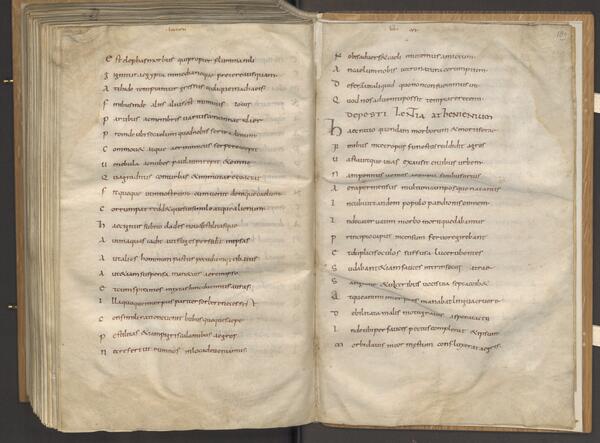 Est elephas morbus qui propter flumina nili
gignitur aegypto in media neque praeterea usquam
Atthide temptantur gressus oculique in achaeis
finibus inde aliis alius locus est inimicus
Partibus ac membris varius concinnat id aer
Proinde ubi se caelum quod nobis forte alienum
Commovet atque aer inimicus serpere coepit
ut nebula ac nubes paulatim repit et omne
Qua graditur conturbat et immutare coactat
fit quoque ut in nostrum cum venit denique caelum
Corrumpat reddatque sui simile atque alienum
haec igitur subito clades nova pestilitasque
Aut in aquas cadit aut fruges persidit in ipsas
Aut alios hominum pastus pecudumque cibatus
Aut etiam suspensa manet vis aere in ipso
Et cum spirantes mixtas hinc ducimus auras
Illa quoque in corpus pariter sorbere necesse st
Consimili ratione venit bubus quoque saepe
Pestilitas et iam pigris balantibus aegror
Nec refert utrum nos in loca deveniamus
Nobis adversa et caeli mutemus
An caelum nobis ultro natura corumptum
Deferat aut aliquid quo non consuevimus uti
Quod nos adventu possit temptare recenti
DE PESTILENTIA ATHENIENSIUM
Haec ratio quondam morborum et mortifera
finibus funestos reddidit agros
Vastavitque vias exhausit civibus urbem
Nam penitus veniens finibus ortus
Aera permensus multum camposque natantis
Incubuit tandem populo pandionis omnem
Inde catervatim morbo mortique dabantur
Principio caput incensum fervore gerebant
Et duplicis oculos suffusa luce rubentes
Sudabant etiam fauces intrinsecus atrae
Sanguine et ulceribus vocis via saepta coibat
Atque animi interpres manabat lingua cruore
Debilitata malis motu gravis aspera tactu
Inde ubi per fauces pectus complerat et ipsum
Morbida vis in cor maestum confluxerat aegris